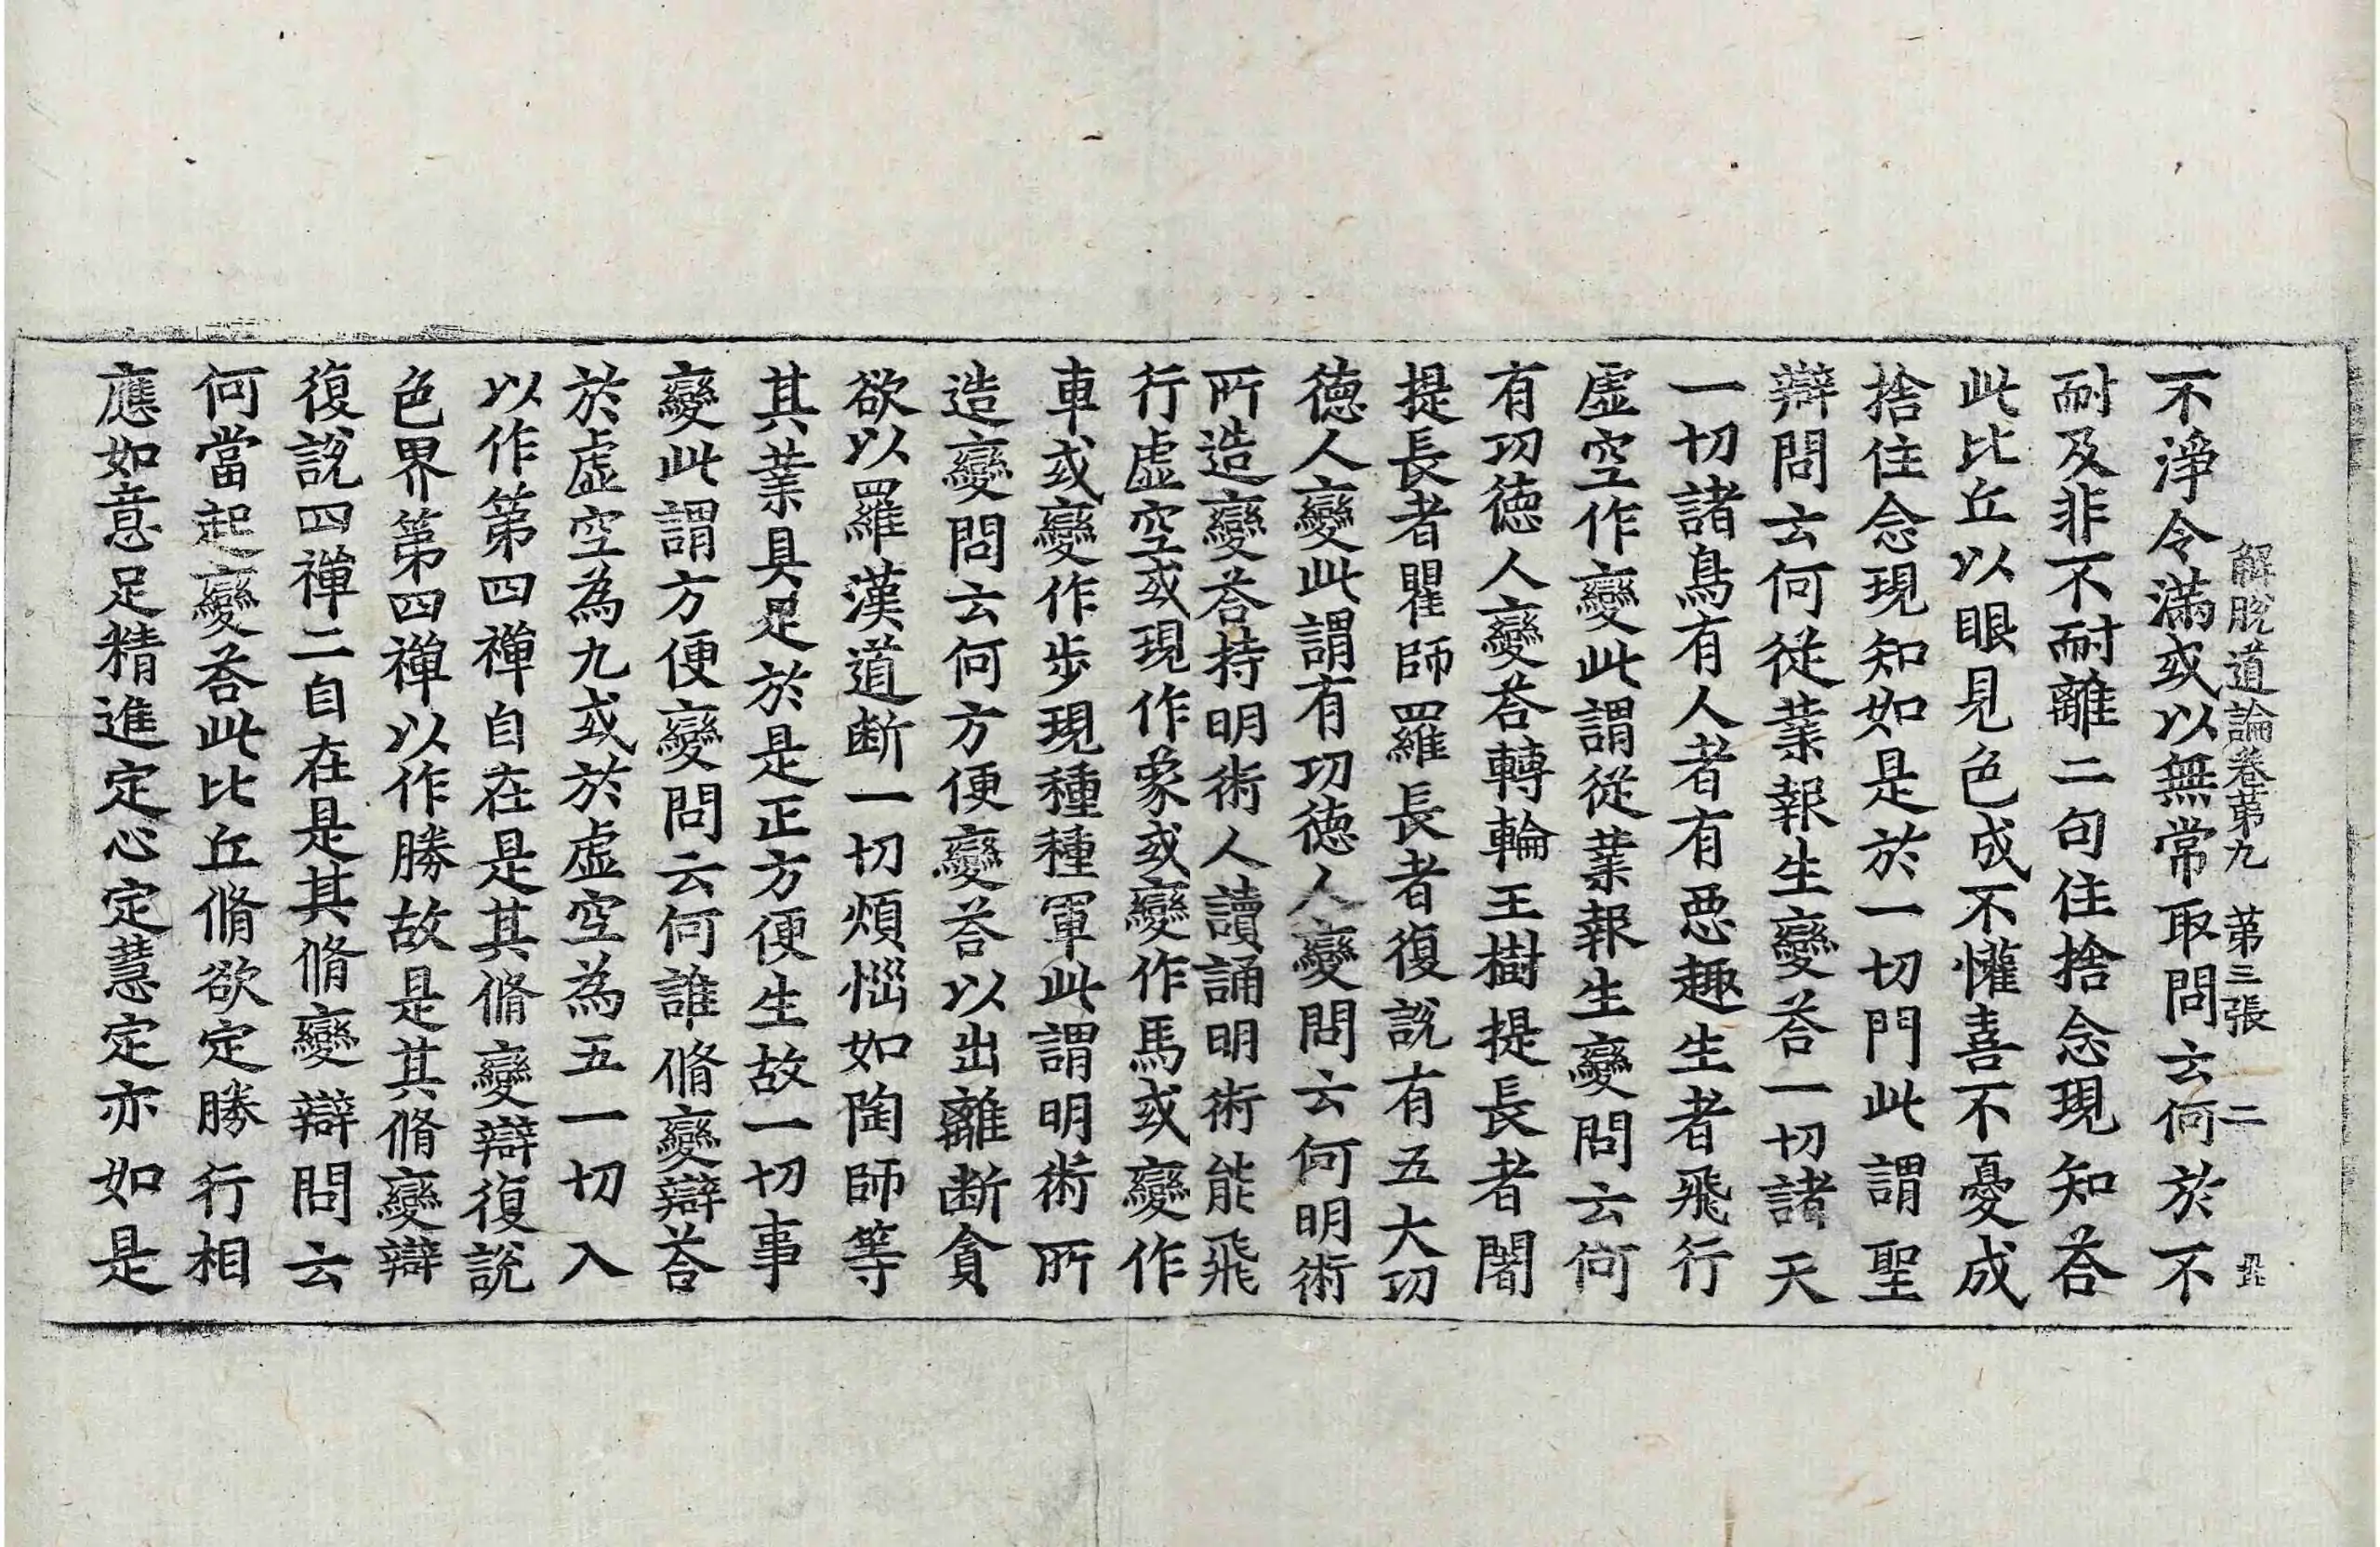 解脫道論卷第九　第三張　二
不淨令滿或以無常取問云何於不
耐及非不耐離二句住捨念現知荅
此比丘以眼見色成不懽喜不憂成
捨住念現知如是於一切門此謂聖
辯問云何從業報生變荅一切諸天
一切諸鳥有人者有惡趣生者飛行
虛空作變此謂從業報生變問云何
有功德人變荅轉輪王樹提長者闍
提長者瞿師羅長者復說有五大功
德人變此謂有功德人變問云何明術
所造變荅持明術人讀誦明術能飛
行虛空或現作象或變作馬或變作
車或變作步現種種軍此謂明術所
造變問云何方便變荅以出離斷貪
欲以羅漢道斷一切煩惱如陶師等
其業具足於是正方便生故一切事
變此謂方便變問云何誰脩變辯荅
於虛空為九或於虛空為五一切入
以作第四禪自在是其脩變辯復說
色界第四禪以作勝故是其脩變辯
復說四禪二自在是其脩變辯問云
何當起變荅此比丘脩欲定勝行相
應如意足精進定心定慧定亦如是